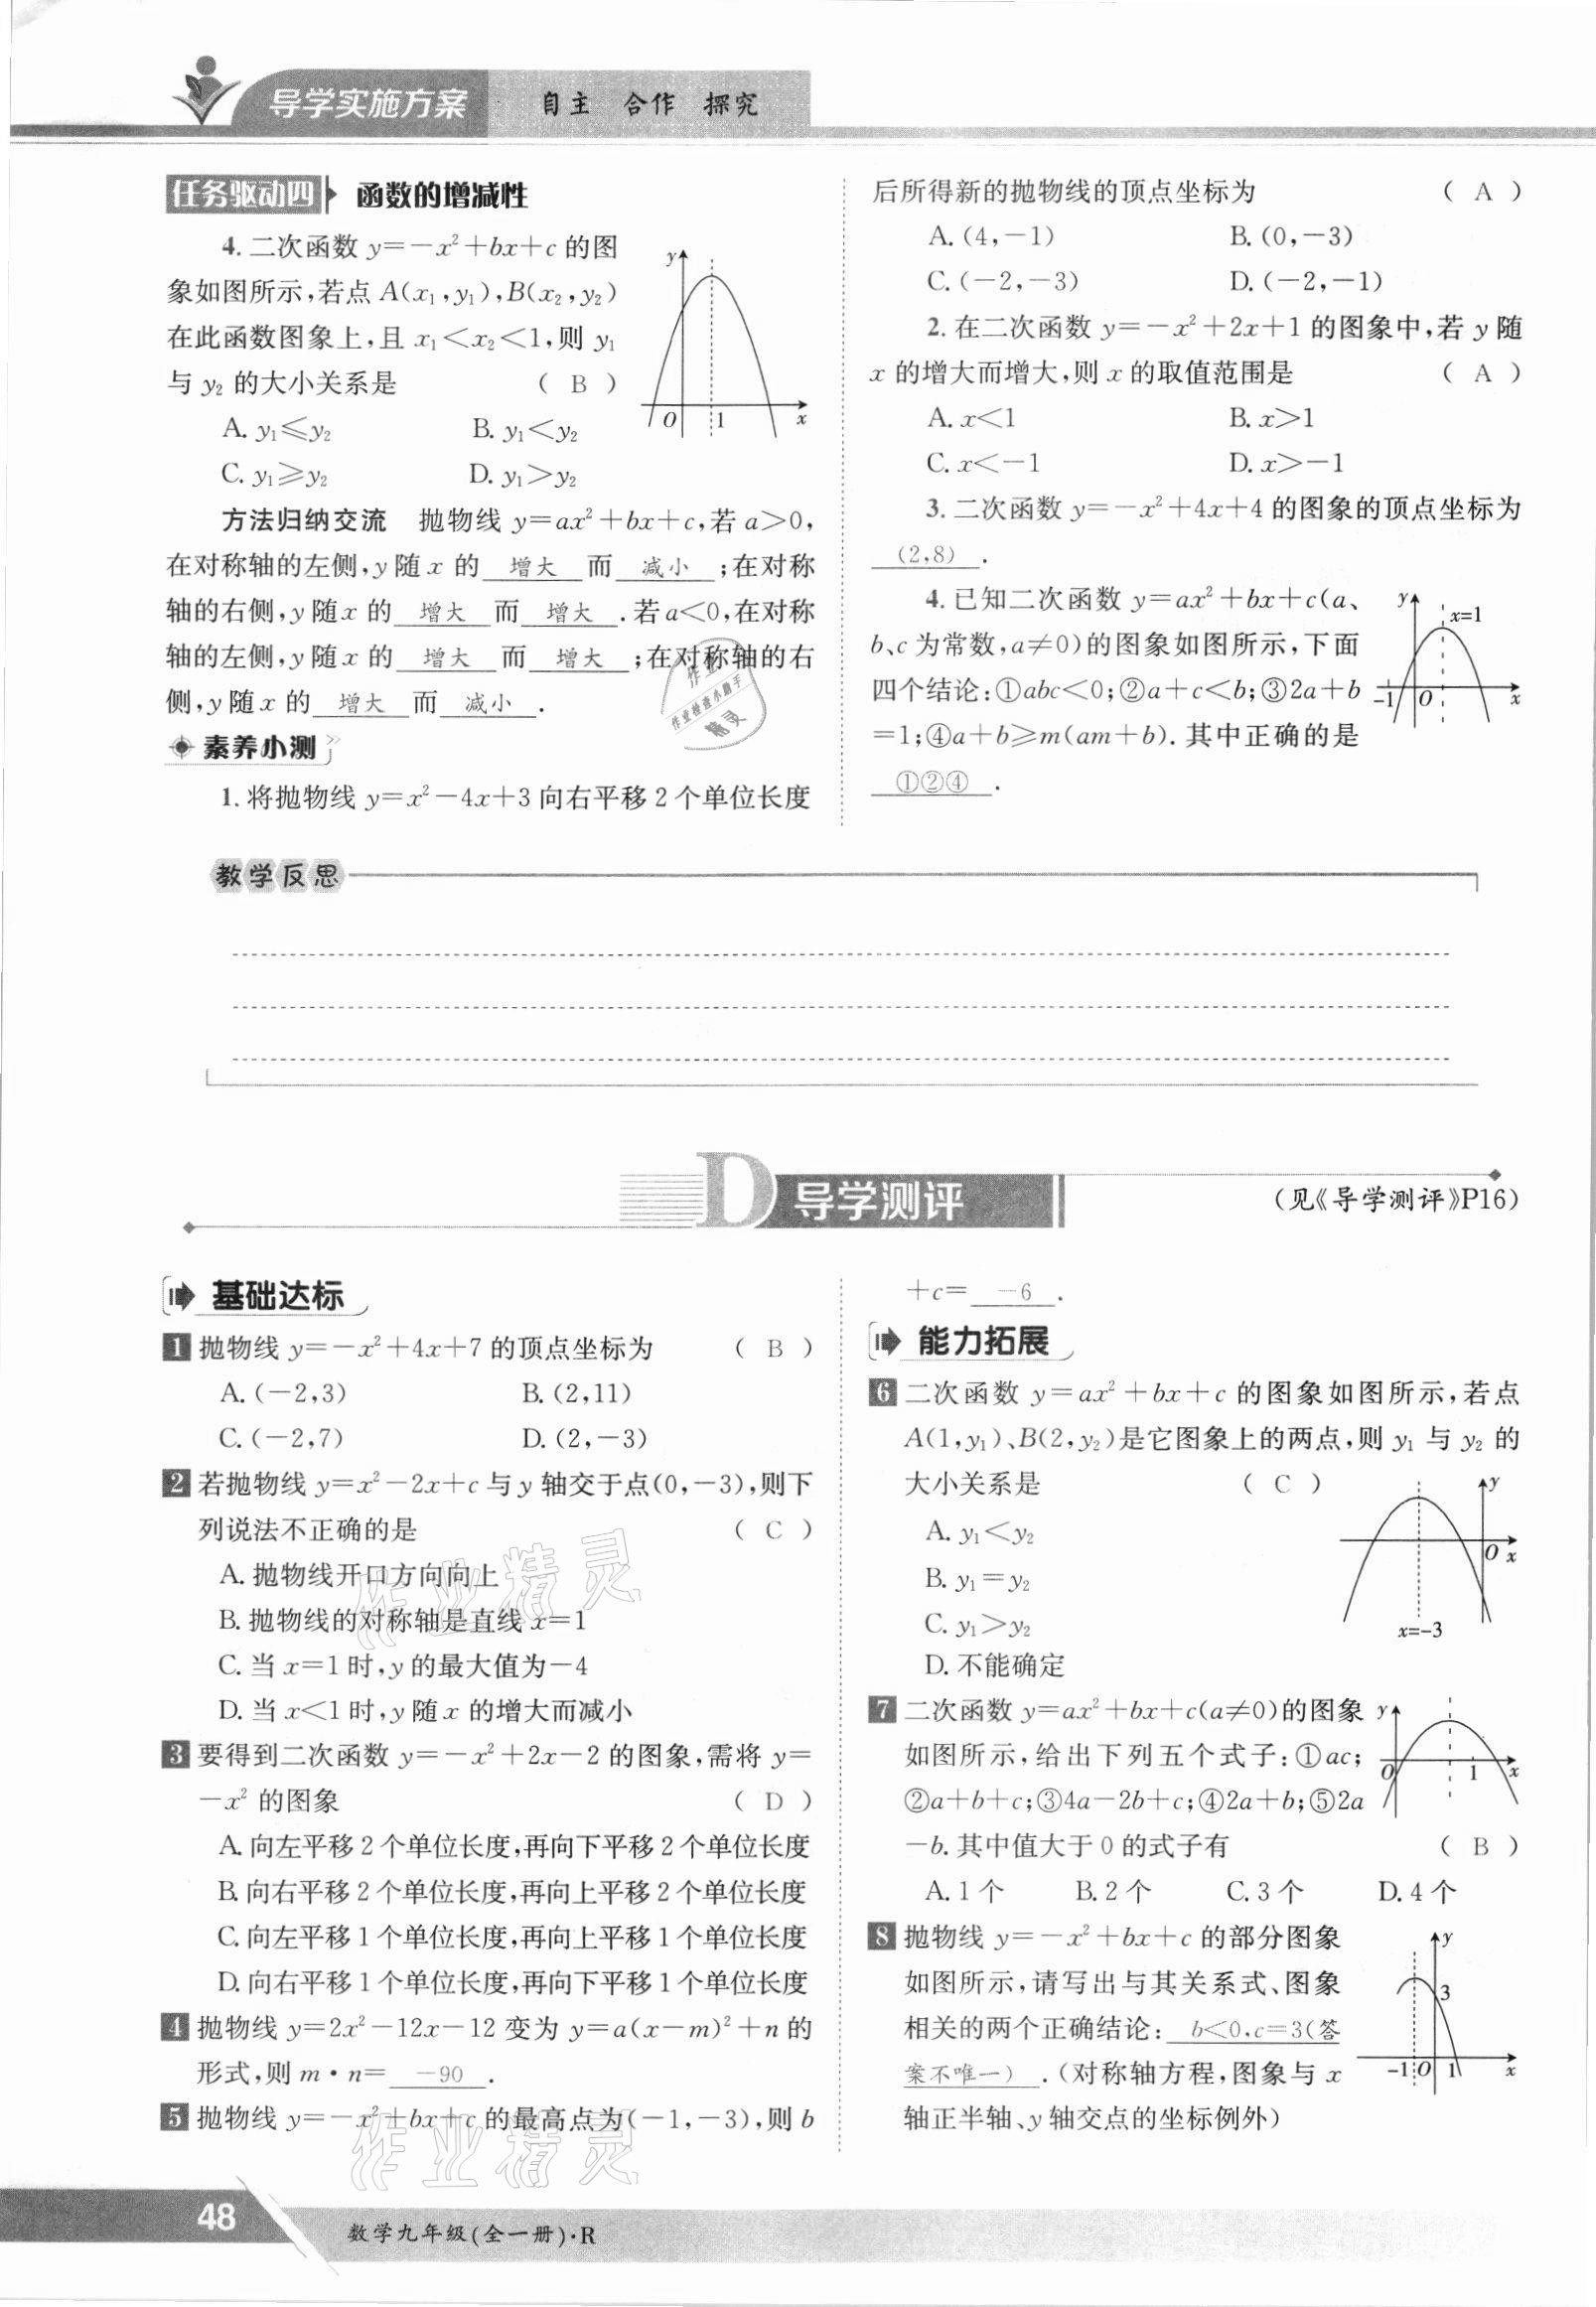 导学实施方案
自主 合作 探究
任务驱动四 函数的增减性
4. 二次函数 y=-x²+bx+c 的图
象如图所示,若点 A(x₁,y₁),B(x₂,y₂)
在此函数图象上,且 x₁<x₂<1,则 y₁
与 y₂ 的大小关系是 ( B )
A. y₁≤y₂ B. y₁<y₂
C. y₁≥y₂ D. y₁>y₂
y
O 1 x
方法归纳交流 抛物线 y=ax²+bx+c,若 a>0,
在对称轴的左侧,y 随 x 的 增大 而 减小 ;在对称
轴的右侧,y 随 x 的 增大 而 增大 .若 a<0,在对称
轴的左侧,y 随 x 的 增大 而 增大 ;在对称轴的右
侧,y 随 x 的 增大 而 减小 .
素养小测
1. 将抛物线 y=x²-4x+3 向右平移 2 个单位长度
后所得新的抛物线的顶点坐标为 ( A )
A. (4,-1) B. (0,-3)
C. (-2,-3) D. (-2,-1)
2. 在二次函数 y=-x²+2x+1 的图象中,若 y 随
x 的增大而增大,则 x 的取值范围是 ( A )
A. x<1 B. x>1
C. x<-1 D. x>-1
3. 二次函数 y=-x²+4x+4 的图象的顶点坐标为
(2,8) .
4. 已知二次函数 y=ax²+bx+c(a、
b、c 为常数,a≠0)的图象如图所示,下面
四个结论:①abc<0;②a+c<b;③2a+b
=1;④a+b≥m(am+b). 其中正确的是
①②④ .
y x=1
-1 O x
作业
作业检查小助手
精灵
教学反思
D 导学测评
(见《导学测评》P16)
基础达标
1 抛物线 y=-x²+4x+7 的顶点坐标为 ( B )
A. (-2,3) B. (2,11)
C. (-2,7) D. (2,-3)
2 若抛物线 y=x²-2x+c 与 y 轴交于点(0,-3),则下
列说法不正确的是 ( C )
A. 抛物线开口方向向上
B. 抛物线的对称轴是直线 x=1
C. 当 x=1 时,y 的最大值为-4
D. 当 x<1 时,y 随 x 的增大而减小
3 要得到二次函数 y=-x²+2x-2 的图象,需将 y=
-x² 的图象 ( D )
A. 向左平移 2 个单位长度,再向下平移 2 个单位长度
B. 向右平移 2 个单位长度,再向上平移 2 个单位长度
C. 向左平移 1 个单位长度,再向上平移 1 个单位长度
D. 向右平移 1 个单位长度,再向下平移 1 个单位长度
4 抛物线 y=2x²-12x-12 变为 y=a(x-m)²+n 的
形式,则 m·n= -90 .
5 抛物线 y=-x²+bx+c 的最高点为(-1,-3),则 b
+c= -6 .
能力拓展
6 二次函数 y=ax²+bx+c 的图象如图所示,若点
A(1,y₁)、B(2,y₂)是它图象上的两点,则 y₁ 与 y₂ 的
大小关系是 ( C )
A. y₁<y₂
B. y₁=y₂
C. y₁>y₂
D. 不能确定
y
O x
x=-3
7 二次函数 y=ax²+bx+c(a≠0)的图象
如图所示,给出下列五个式子:①ac;
②a+b+c;③4a-2b+c;④2a+b;⑤2a
-b. 其中值大于 0 的式子有 ( B )
A. 1 个 B. 2 个 C. 3 个 D. 4 个
y
O 1 x
8 抛物线 y=-x²+bx+c 的部分图象
如图所示,请写出与其关系式、图象
相关的两个正确结论: b<0,c=3(答
案不唯一) .(对称轴方程,图象与 x
轴正半轴、y 轴交点的坐标例外)
y
3
-1 O 1 x
作业精灵
作业精灵
48
数学九年级(全一册)·R